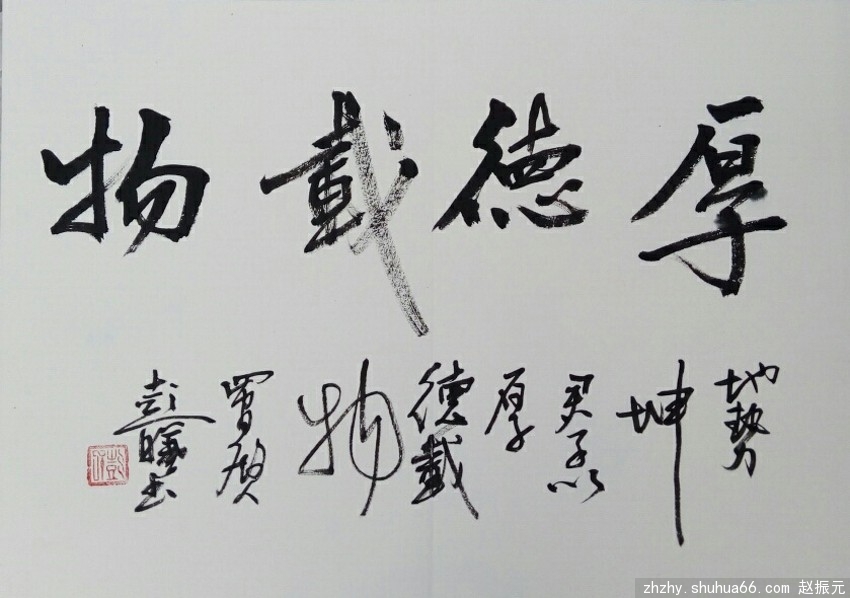 厚德載物
地勢
坤
君子以
厚
德載
物
彭曦书
zhzhy.shuhua66.com 赵振元